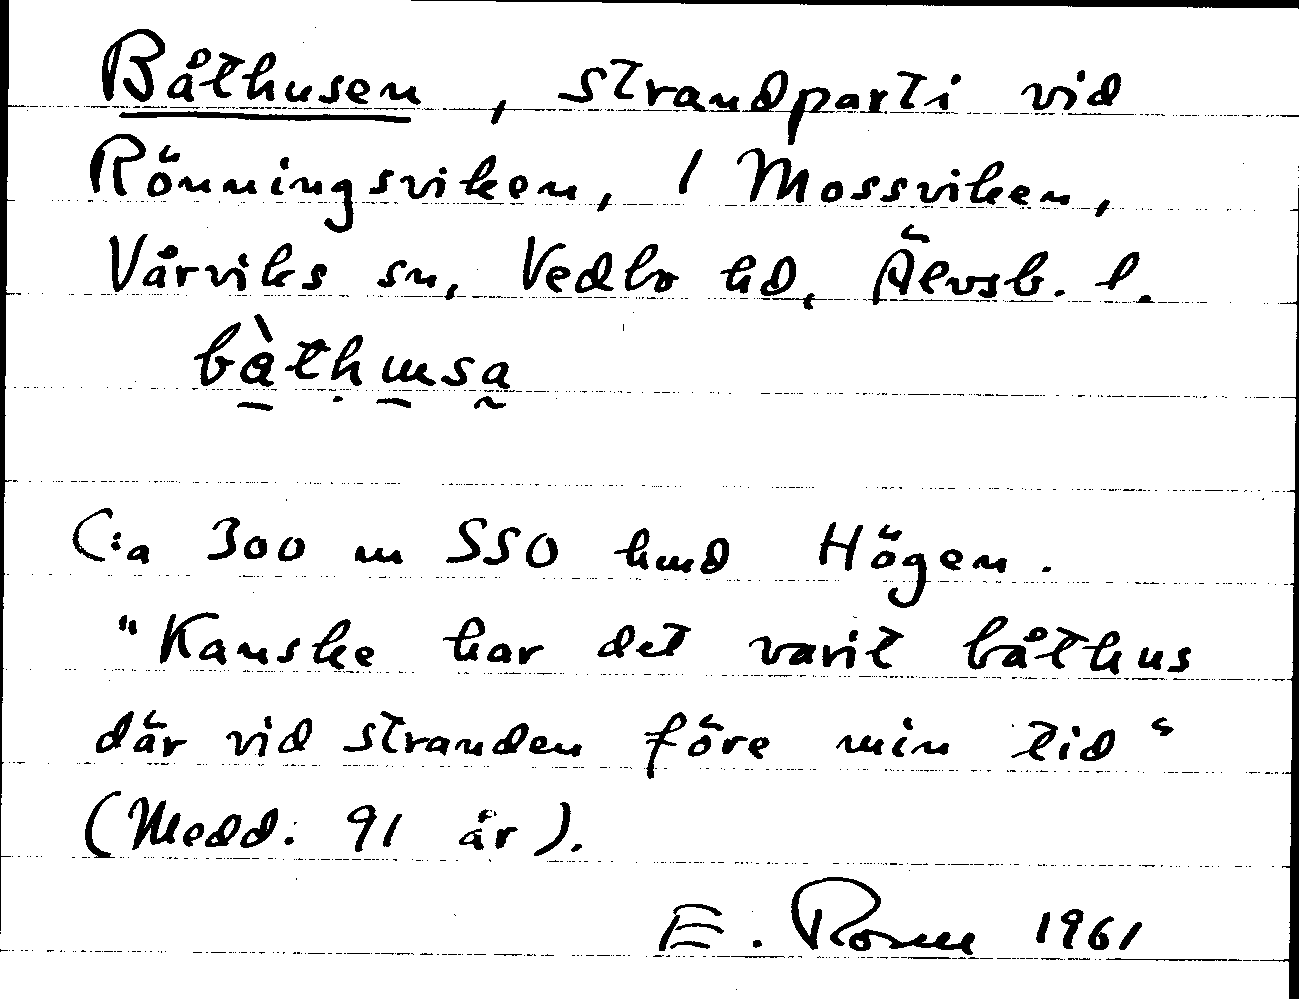 Båthusen, strandparti vid
Rönningsviken, 1 Mossviken,
Vårviks sn, Vedbo hd, Älvsb. l.
bàtḥusa
C:a 300 m SSO hmd Högen.
"Kanske har det varit båthus
där vid stranden före min tid"
(Medd. 91 år).
E. 1961